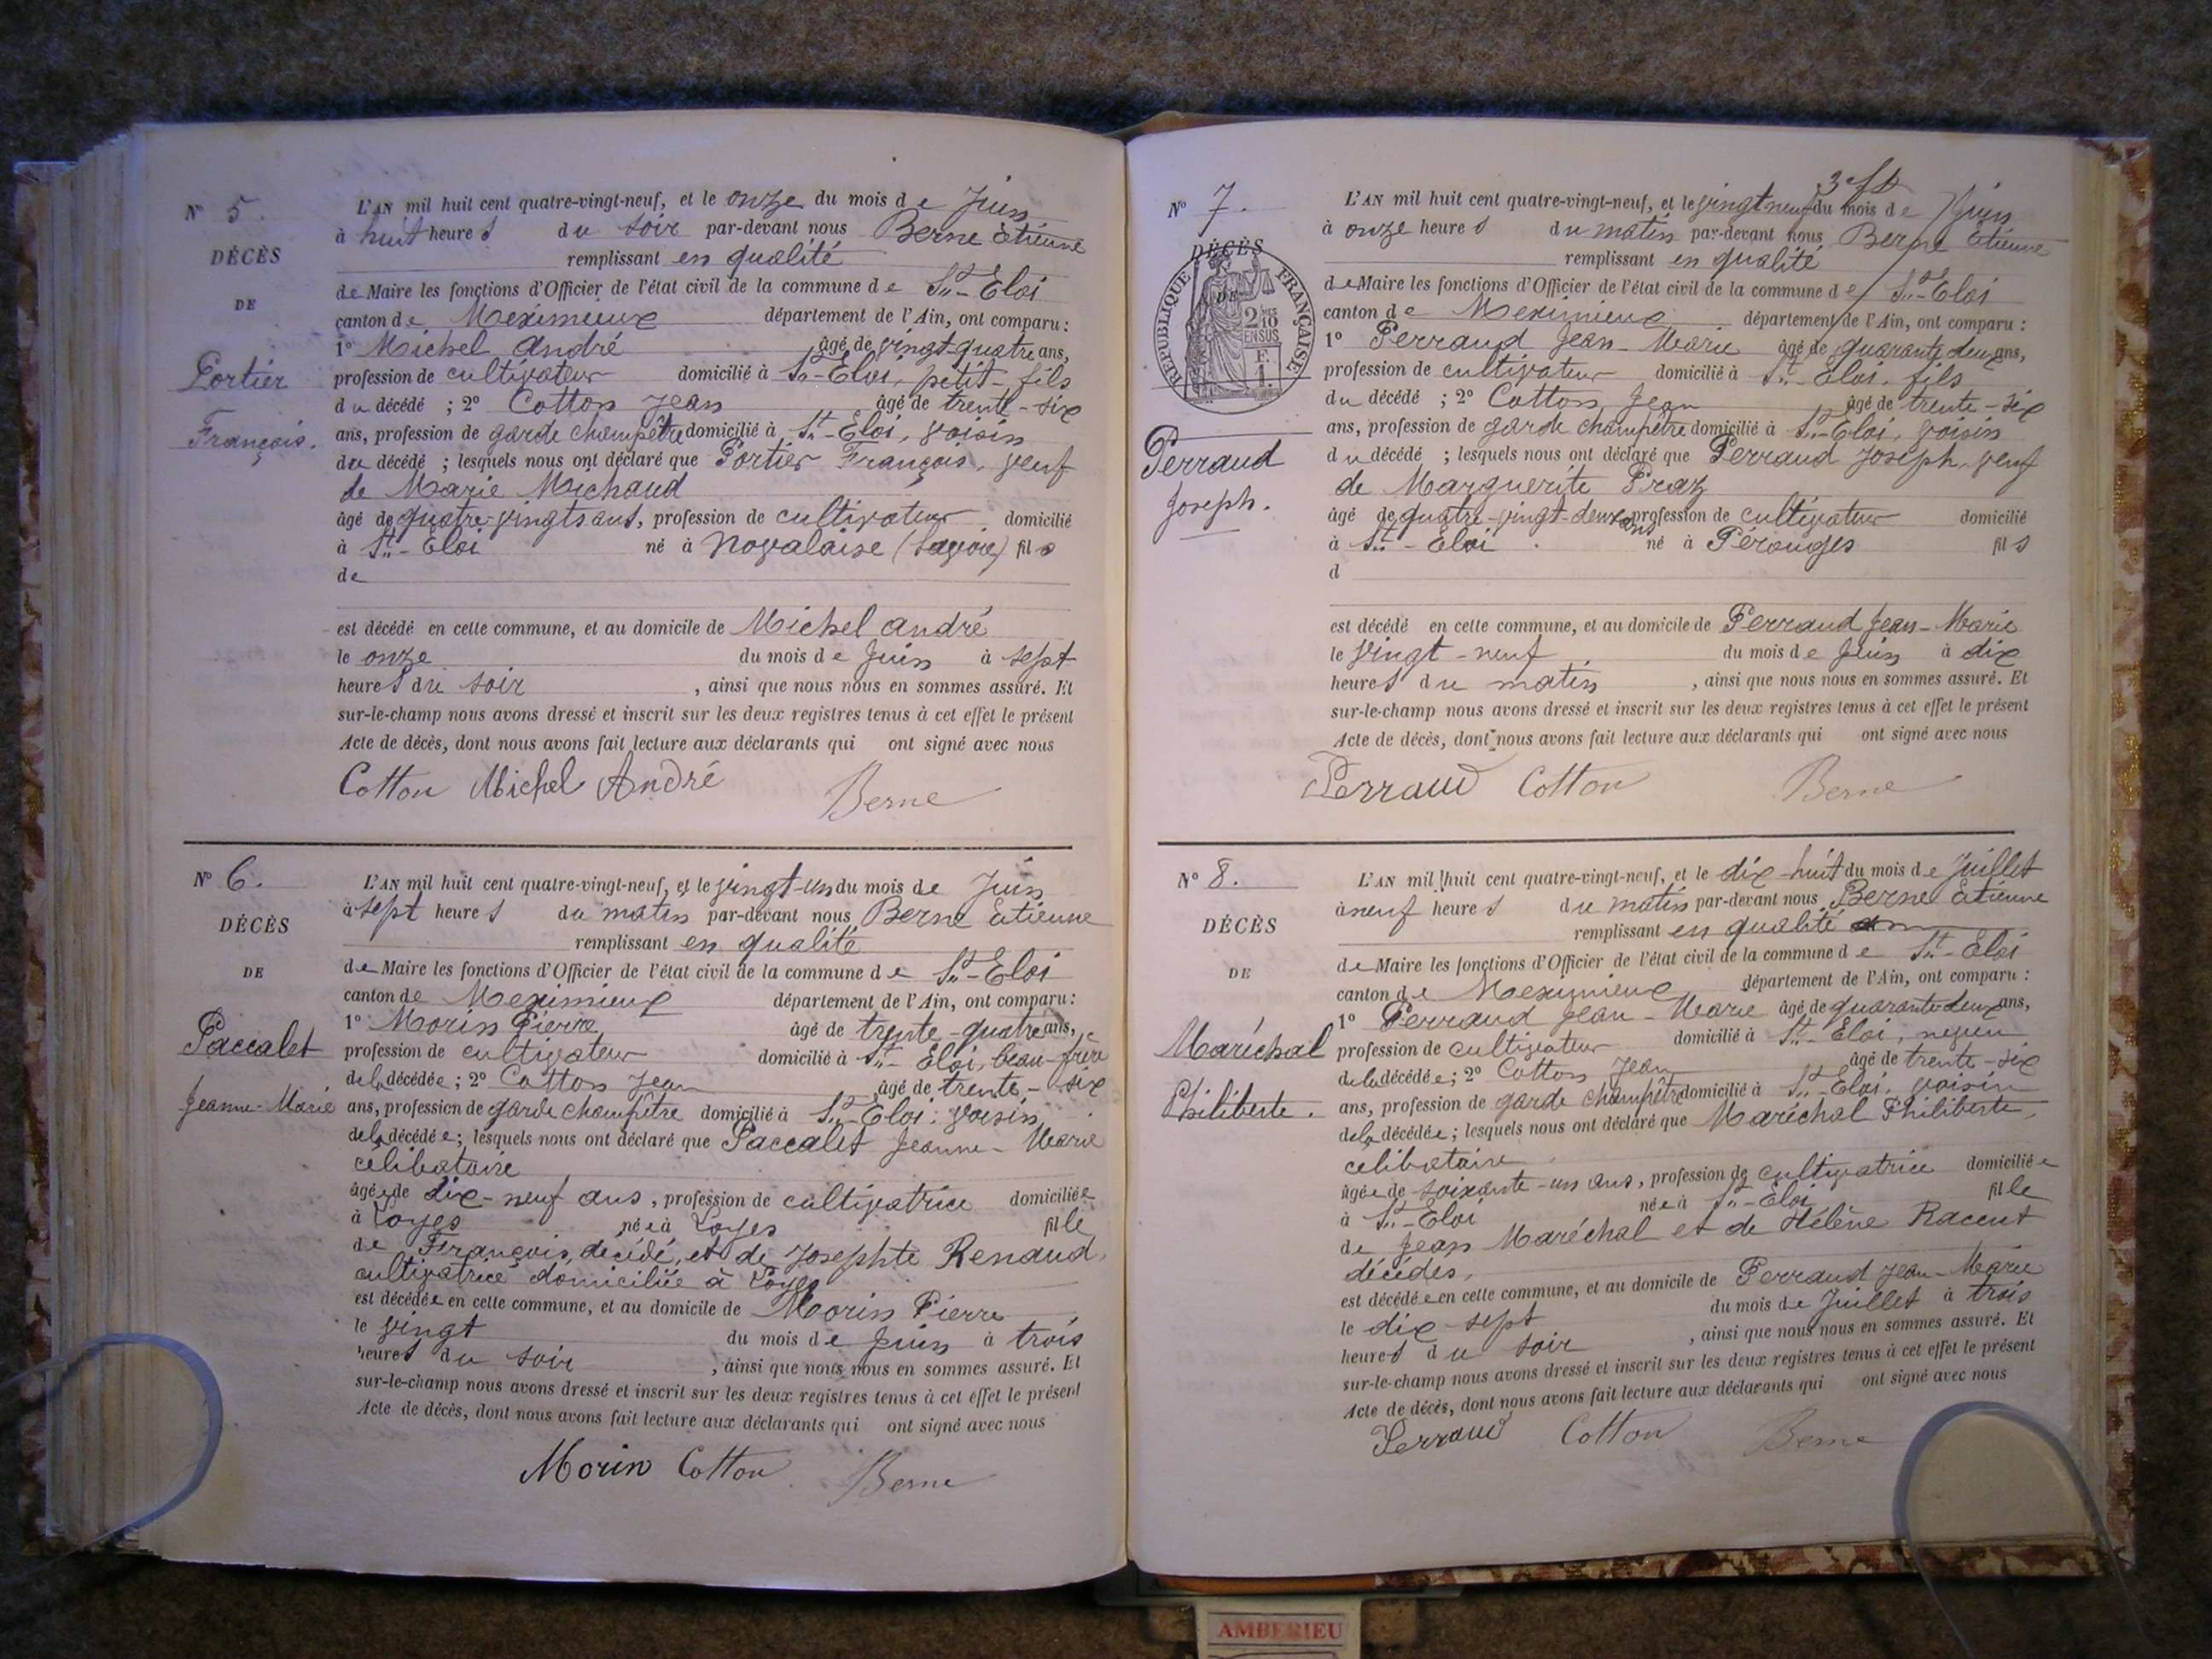 N° 5.
DÉCÈS
DE
Portier
François.
L'AN mil huit cent quatre-vingt-neuf, et le onze du mois de Juin
à huit heures du soir par-devant nous Berne Etienne
remplissant en qualité
de Maire les fonctions d'Officier de l'état civil de la commune de St-Eloi
canton de Meximieux département de l'Ain, ont comparu :
1° Michel André âgé de vingt-quatre ans,
profession de cultivateur domicilié à St-Eloi, petit-fils
du décédé ; 2° Cotton Jean âgé de trente-six
ans, profession de garde champêtre domicilié à St-Eloi, voisin
du décédé ; lesquels nous ont déclaré que Portier François, veuf
de Marie Michaud
âgé de quatre-vingts ans, profession de cultivateur domicilié
à St-Eloi né à Novalaise (Savoie) fils
de
est décédé en cette commune, et au domicile de Michel André
le onze du mois de Juin à sept
heures du soir , ainsi que nous nous en sommes assuré. Et
sur-le-champ nous avons dressé et inscrit sur les deux registres tenus à cet effet le présent
Acte de décès, dont nous avons fait lecture aux déclarants qui ont signé avec nous
Cotton Michel André Berne
N° 6.
DÉCÈS
DE
Paccalet
Jeanne-Marie
L'AN mil huit cent quatre-vingt-neuf, et le vingt-un du mois de Juin
à sept heures du matin par-devant nous Berne Etienne
remplissant en qualité
de Maire les fonctions d'Officier de l'état civil de la commune de St-Eloi
canton de Meximieux département de l'Ain, ont comparu :
1° Morin Pierre âgé de trente-quatre ans,
profession de cultivateur domicilié à St-Eloi, beau-frère
de la décédée ; 2° Cotton Jean âgé de trente-six
ans, profession de garde champêtre domicilié à St-Eloi, voisin
de la décédée ; lesquels nous ont déclaré que Paccalet Jeanne-Marie
célibataire
âgée de dix-neuf ans, profession de cultivatrice domiciliée
à Loyes née à Loyes fille
de François, décédé, et de Josephte Renaud,
cultivatrice domiciliée à Loyes
est décédée en cette commune, et au domicile de Morin Pierre
le vingt du mois de Juin à trois
heures du soir , ainsi que nous nous en sommes assuré. Et
sur-le-champ nous avons dressé et inscrit sur les deux registres tenus à cet effet le présent
Acte de décès, dont nous avons fait lecture aux déclarants qui ont signé avec nous
Morin Cotton Berne
N° 7.
DÉCÈS
DE
RÉPUBLIQUE FRANÇAISE
2/10
EN SUS
F.
1.
Perraud
Joseph.
L'AN mil huit cent quatre-vingt-neuf, et le vingt-neuf du mois de Juin
à onze heures du matin par-devant nous Berne Etienne
remplissant en qualité
de Maire les fonctions d'Officier de l'état civil de la commune de St-Eloi
canton de Meximieux département de l'Ain, ont comparu :
1° Perraud Jean-Marie âgé de quarante-deux ans,
profession de cultivateur domicilié à St-Eloi, fils
du décédé ; 2° Cotton Jean âgé de trente-six
ans, profession de garde champêtre domicilié à St-Eloi, voisin
du décédé ; lesquels nous ont déclaré que Perraud Joseph, veuf
de Marguerite Praz
âgé de quatre-vingt-deux ans profession de cultivateur domicilié
à St-Eloi né à Pérouges fils
d
est décédé en cette commune, et au domicile de Perraud Jean-Marie
le vingt-neuf du mois de Juin à dix
heures du matin , ainsi que nous nous en sommes assuré. Et
sur-le-champ nous avons dressé et inscrit sur les deux registres tenus à cet effet le présent
Acte de décès, dont nous avons fait lecture aux déclarants qui ont signé avec nous
Perraud Cotton Berne
N° 8.
DÉCÈS
DE
Maréchal
Philiberte.
L'AN mil huit cent quatre-vingt-neuf, et le dix-huit du mois de Juillet
à neuf heures du matin par-devant nous Berne Etienne
remplissant en qualité
de Maire les fonctions d'Officier de l'état civil de la commune de St-Eloi
canton de Meximieux département de l'Ain, ont comparu :
1° Perraud Jean-Marie âgé de quarante-deux ans,
profession de cultivateur domicilié à St-Eloi, neveu
de la décédée ; 2° Cotton Jean âgé de trente-six
ans, profession de garde champêtre domicilié à St-Eloi, voisin
de la décédée ; lesquels nous ont déclaré que Maréchal Philiberte,
célibataire
âgée de soixante-un ans, profession de cultivatrice domiciliée
à St-Eloi née à St-Eloi fille
de Jean Maréchal et de Hélène Racent
décédés,
est décédée en cette commune, et au domicile de Perraud Jean-Marie
le dix-sept du mois de Juillet à trois
heures du soir , ainsi que nous nous en sommes assuré. Et
sur-le-champ nous avons dressé et inscrit sur les deux registres tenus à cet effet le présent
Acte de décès, dont nous avons fait lecture aux déclarants qui ont signé avec nous
Perraud Cotton Berne
AMBERIEU